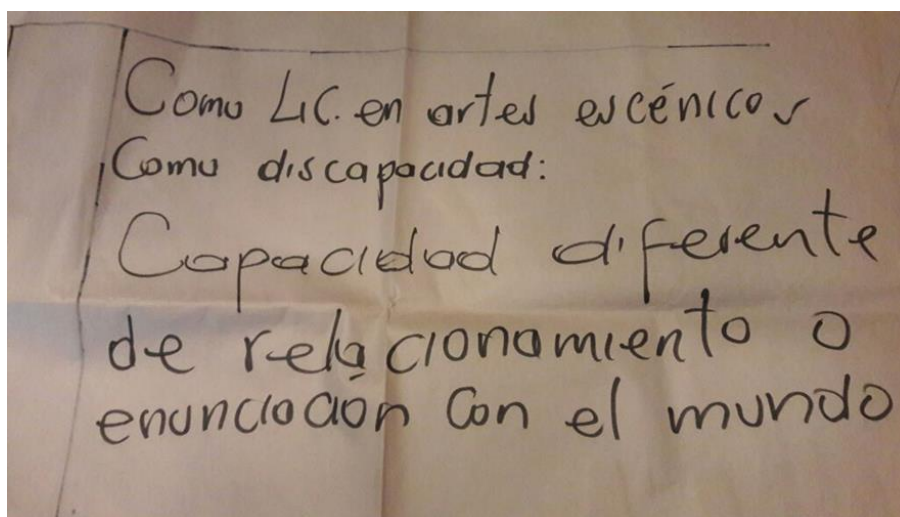 Como Lic. en artes escénicas
Como discapacidad:
Capacidad diferente
de relacionamiento o
enunciación con el mundo